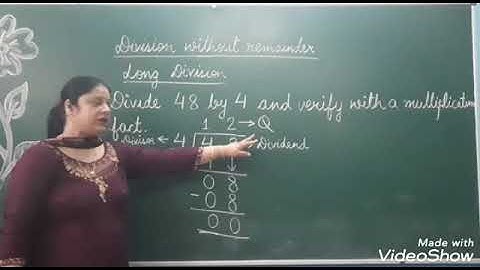 Division without remainder
Long Division
Divide 48 by 4 and verify with a multiplication
fact.
1 2 → Q
Divisor ← 4 4 8 → Dividend
0 8
- 0 8
0 0
Made with
VideoShow